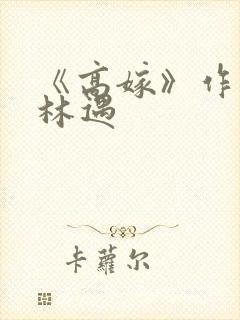 《高嫁》作
林遇
卡蘿尔